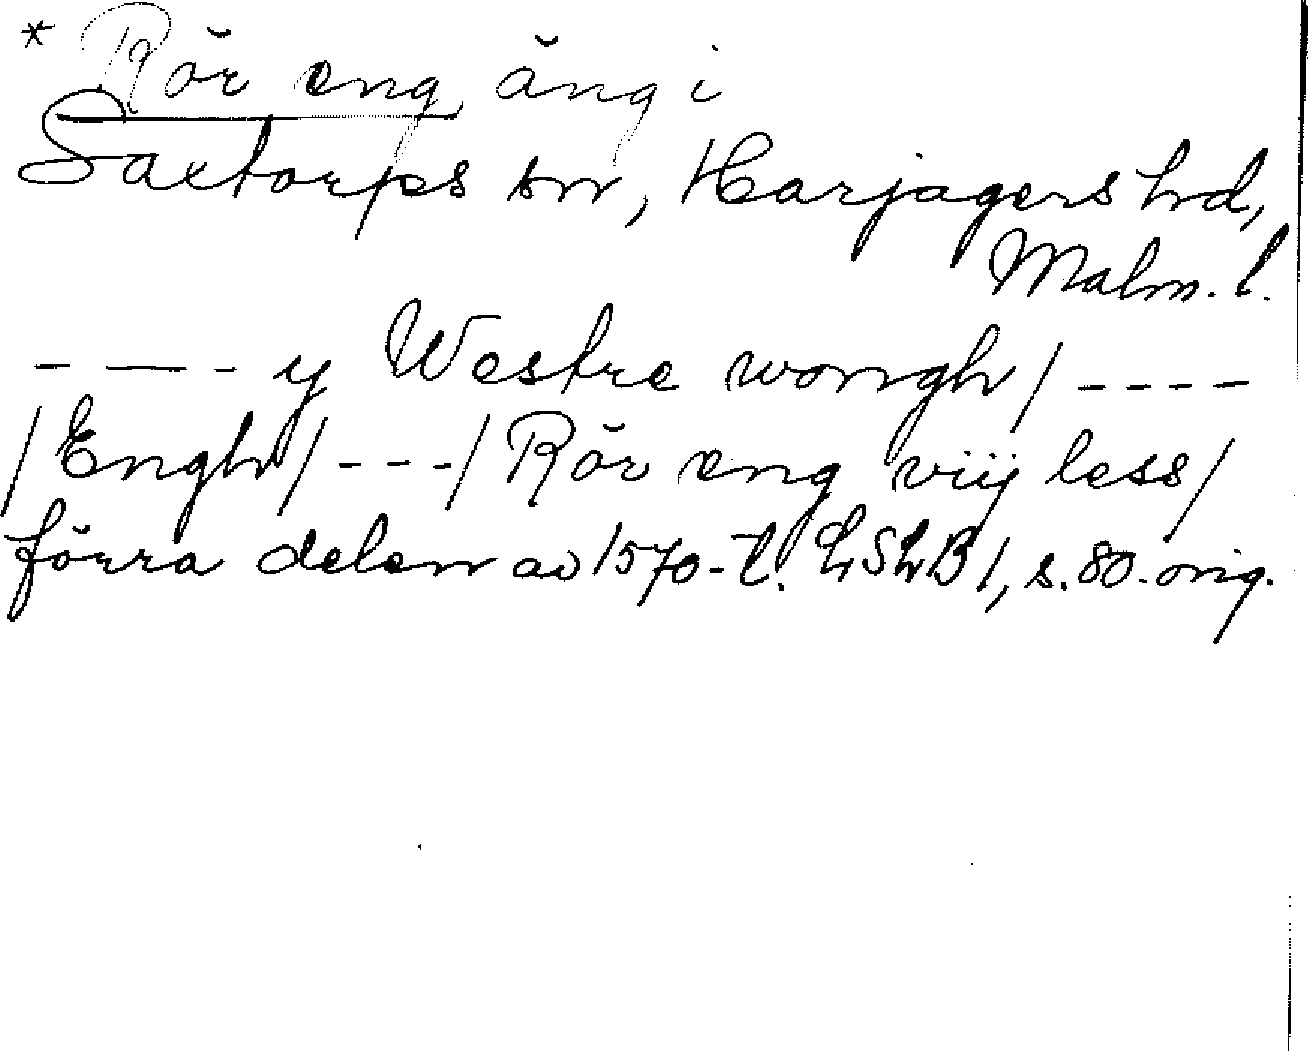 * Rör eng äng i
Saxtorps sn, Harjagers hd,
Malm. l.
- — - y Westre wongh / - - - -
/ Engh / - - - / Rör eng viij less /
förra delen av 1570-t. LSLB 1, s. 80. orig.